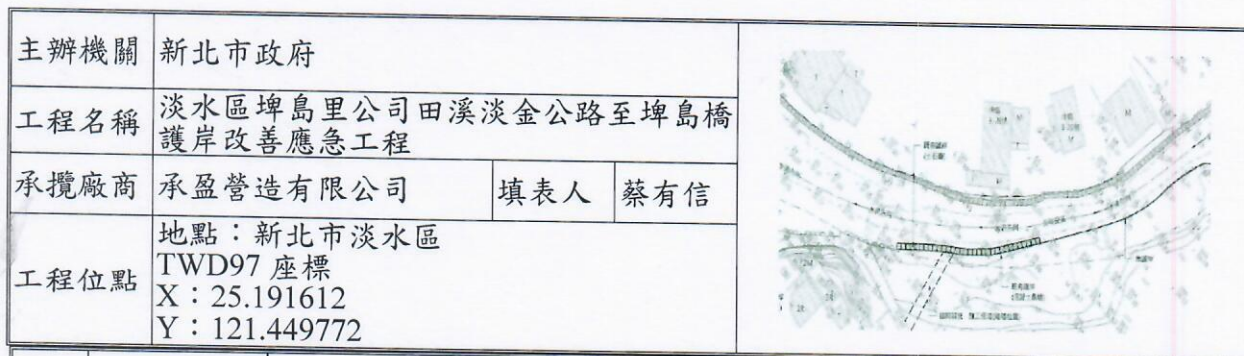 主辦機關
新北市政府
工程名稱
淡水區埤島里公司田溪淡金公路至埤島橋
護岸改善應急工程
承攬廠商
承盈營造有限公司
填表人
蔡有信
工程位點
地點：新北市淡水區
TWD97 座標
X：25.191612
Y：121.449772